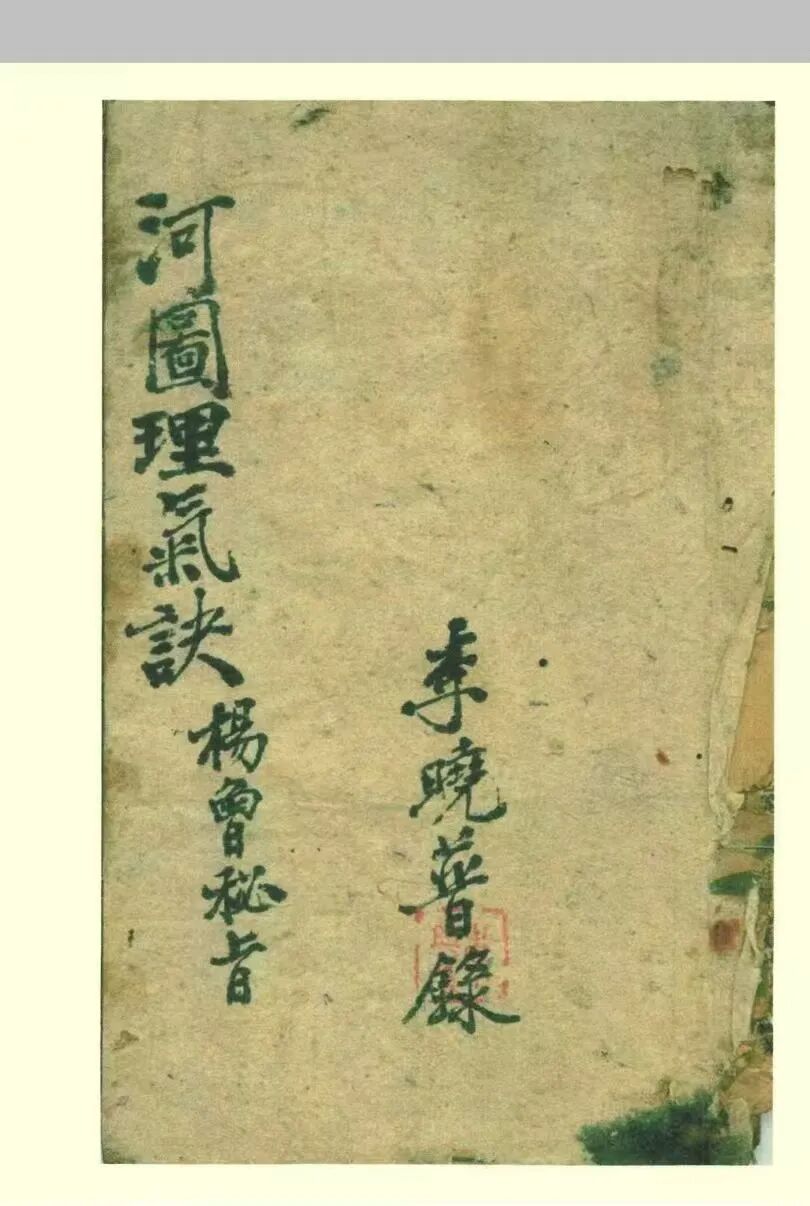 李曉普錄
河圖理氣訣
楊曾秘旨